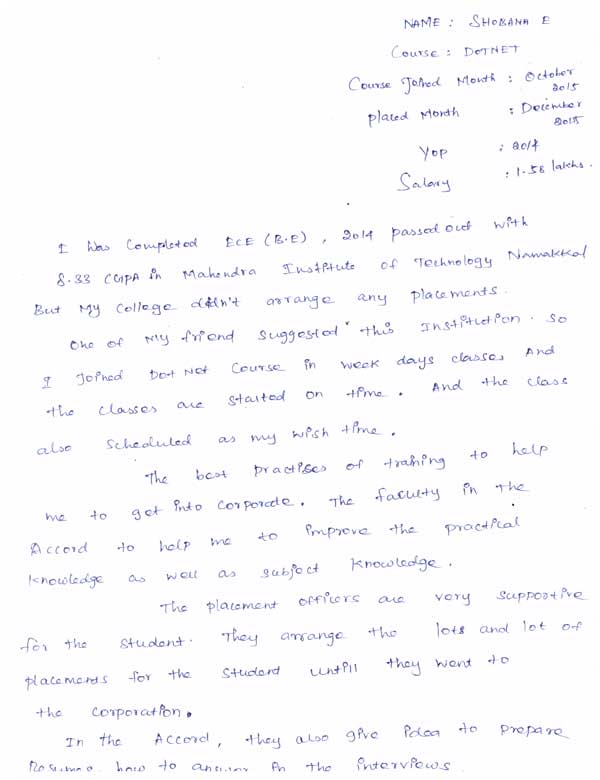 NAME : SHOBANA E
Course : DOTNET
Course Joined Month : October 2015
Placed Month : December 2015
YOP : 2014
Salary : 1.58 lakhs.
I was completed ECE (B.E), 2014 passed out with
8.33 CGPA in Mahendra Institute of Technology Namakkal
But My College didn't arrange any placements.
One of My friend suggested this Institution. So
I Joined Dot Net Course in week days classes And
the classes are started on time. And the class
also scheduled as my wish time.
The best practises of training to help
me to get into corporate. The faculty in the
Accord to help me to improve the practical
knowledge as well as subject knowledge.
The placement officers are very supportive
for the student. They arrange the lots and lot of
placements for the student untill they went to
the corporation.
In the Accord, they also give idea to prepare
Resume, how to answer in the interviews